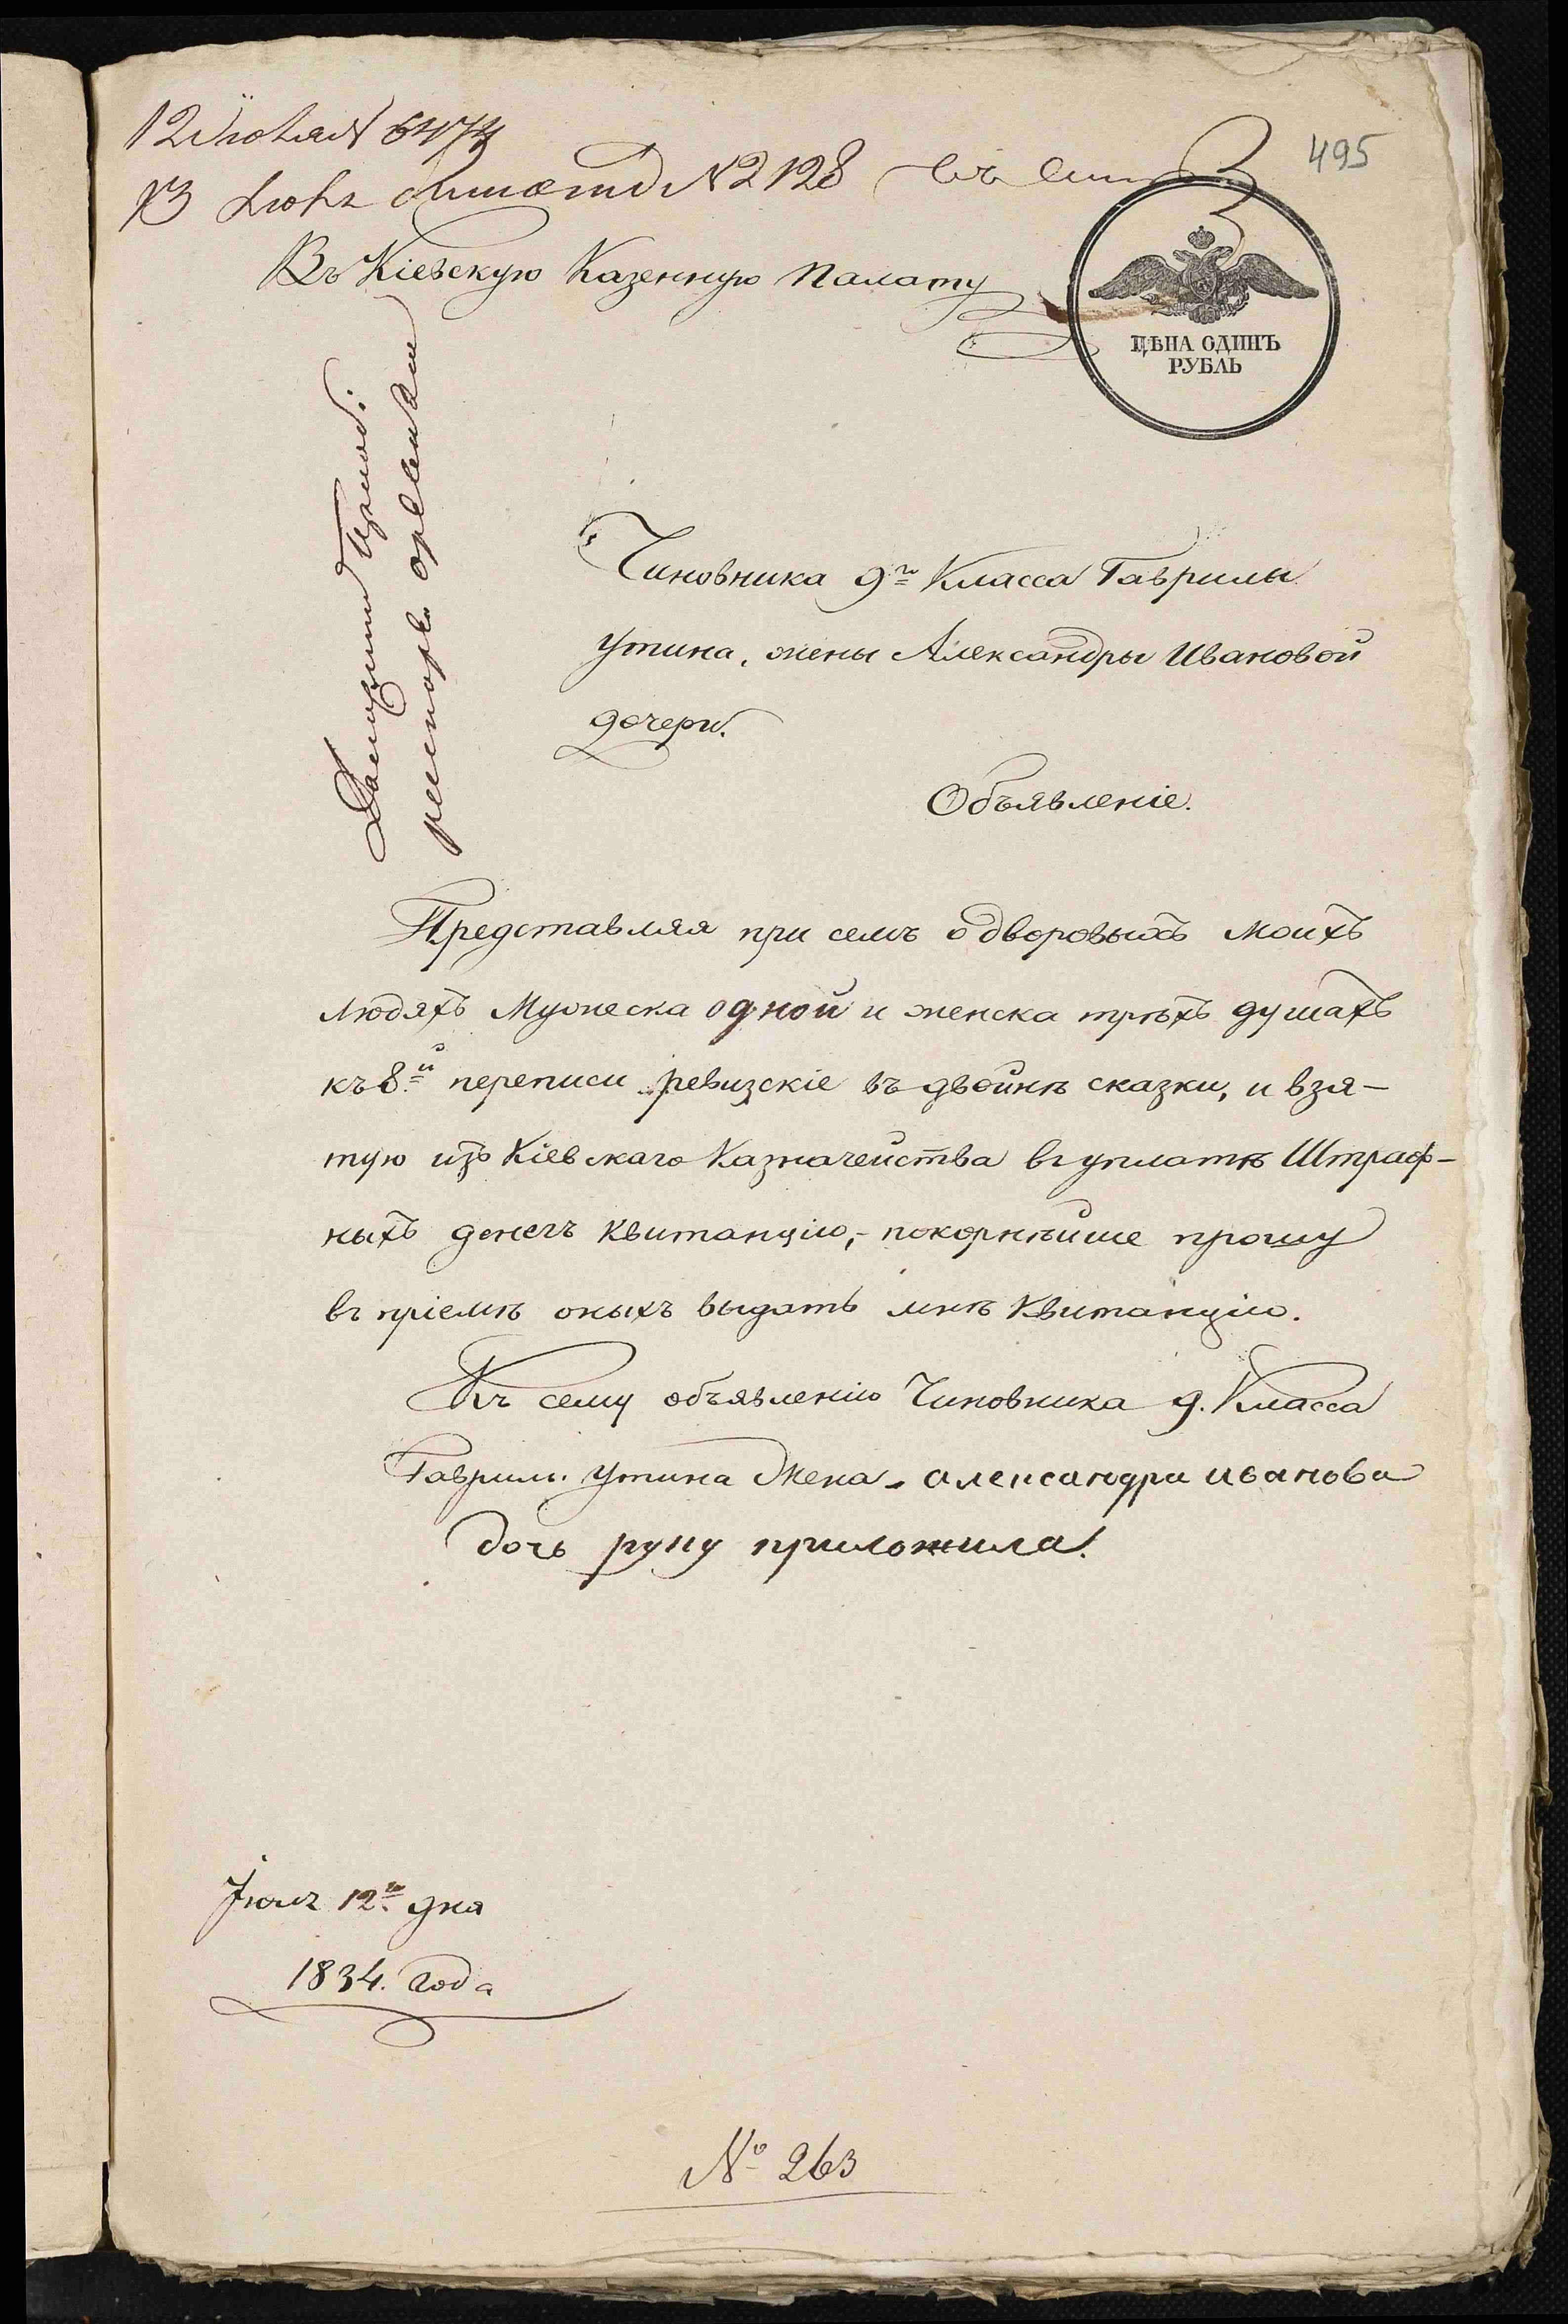 12 Июля N 6474
13 Июля N 2128
495
Въ Кіевскую Казенную Палату
ЦѢНА ОДИНЪ
РУБЛЬ
Чиновника 9го Класса Гаврилы
Утина, жены Александры Ивановой
дочери.
Объявленіе.
Представляя при семъ о дворовыхъ моихъ
людяхъ Мужеска одной и женска трехъ душахъ
къ 8й переписи ревизскіе въ двойнѣ сказки, и взя-
тую изъ Кіевскаго Казначейства въ уплатѣ Штраф-
ныхъ денегъ квитанцію,- покорнѣйше прошу
въ пріемѣ оныхъ выдать мнѣ Квитанцію.
Къ сему объявленію Чиновника 9. Класса
Гаврил. Утина Жена Александра иванова
дочь руку приложила.
Іюля 12го дня
1834. Года
№ 263